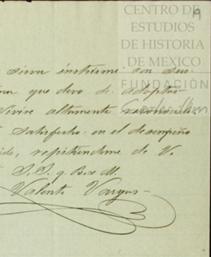 CENTRO DE
ESTUDIOS
DE HISTORIA
DE MEXICO
FUNDACIÓN
sirva instruirme en
que devo de adoptar
altamente
satisfecho en el desempeño
repitiendome de V.
S. S. q B. s M.
Valente Vargas